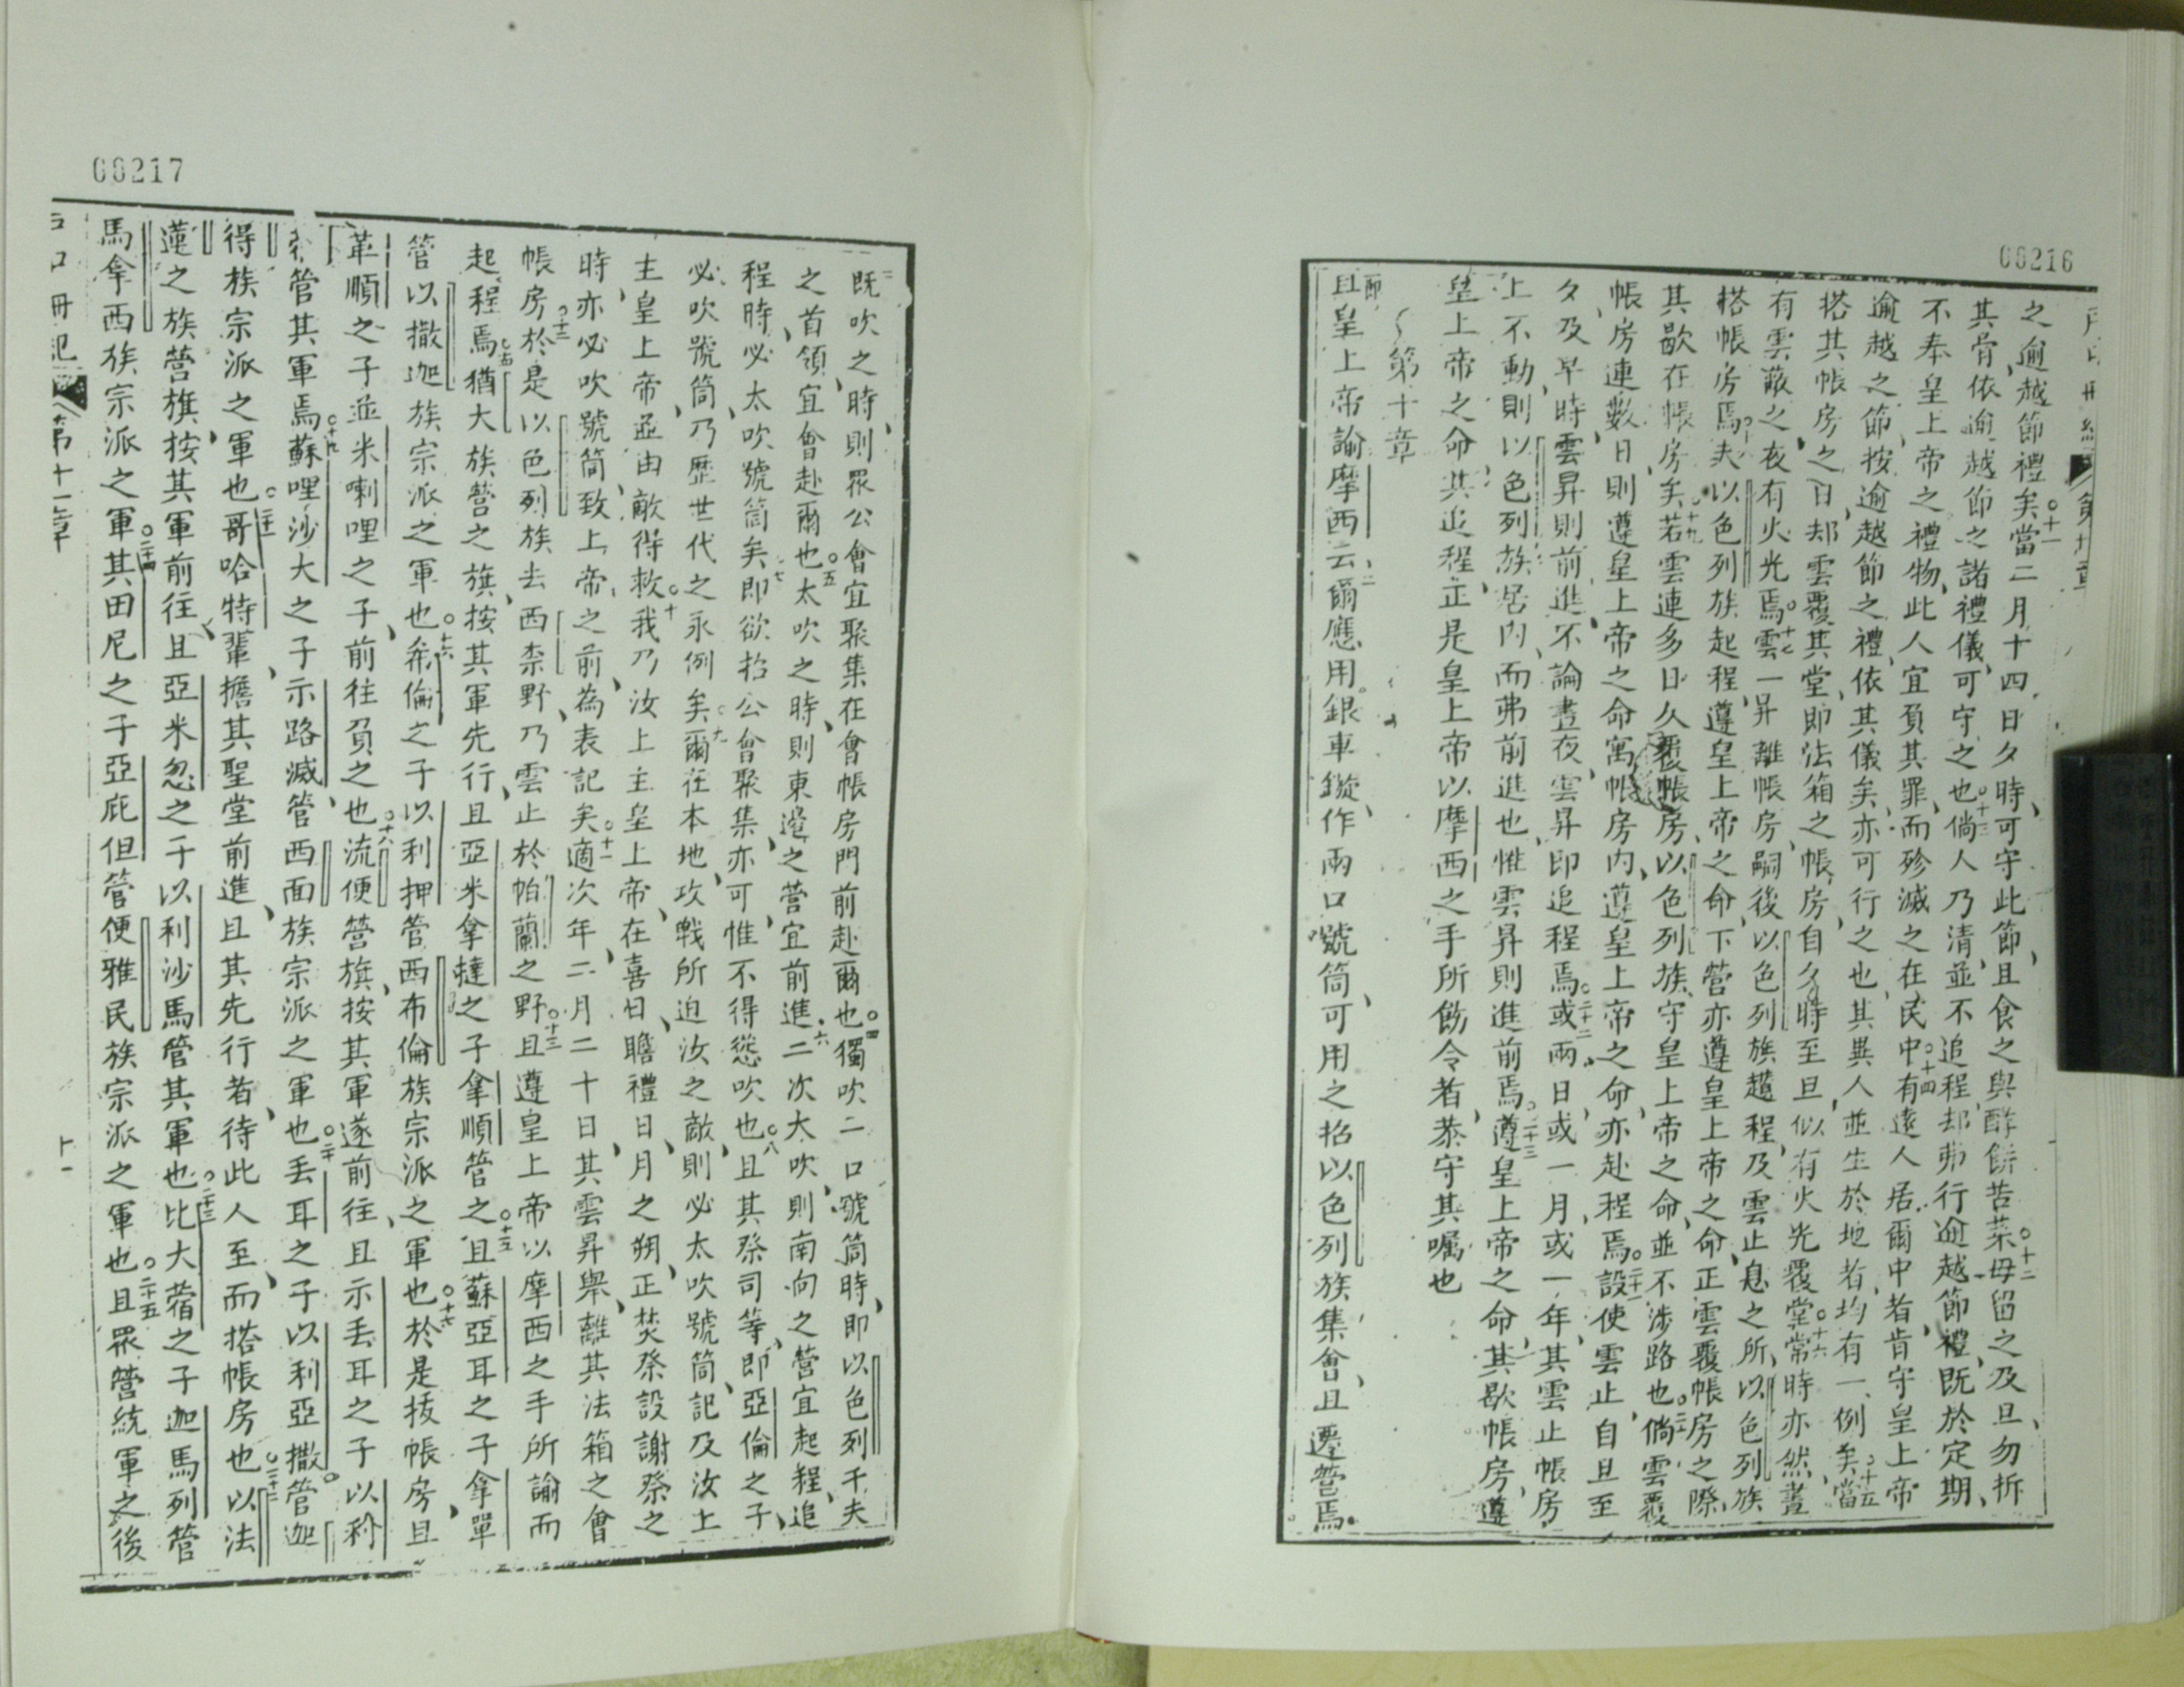 00216
之逾越節禮矣○十一當二月十四日夕時、可守此節、且食之與酵餅苦菜○十二毋留之及旦、勿拆
其骨、依逾越節之諸禮儀、可守之也○十三倘人乃清並不追程、却弗行逾越節禮、既於定期、
不奉皇上帝之禮物、此人宜負其罪、而殄滅之在民中○十四有遠人居爾中者、肯守皇上帝
逾越之節、按逾越節之禮、依其儀矣、亦可行之也、其異人並生於地者、均有一例矣○十五當
搭其帳房之日、却雲覆其堂、即法箱之帳房、自夕時至旦、似有火光覆堂○十六常時亦然、晝
有雲蔽之、夜有火光焉○十七雲一昇離帳房、嗣後以色列族趲程、及雲止息之所、以色列族
搭帳房焉○十八夫以色列族起程、遵皇上帝之命、下營亦遵皇上帝之命、正雲覆帳房之際、
其歇在帳房矣○十九若雲連多日久覆帳房、以色列族、守皇上帝之命、並不涉路也○二十倘雲覆
帳房連數日、則遵皇上帝之命寓帳房內、遵皇上帝之命、亦赴程焉○二十一設使雲止、自旦至
夕、及早時雲昇則前進、不論晝夜、雲昇即追程焉○二十二或兩日、或一月、或一年、其雲止帳房
上不動、則以色列族居內、而弗前進也、惟雲昇則進前焉○二十三遵皇上帝之命、其歇帳房、遵
皇上帝之命、其追程、正是皇上帝以摩西之手所飭令者、恭守其囑也
第十章
一節且皇上帝諭摩西云○二爾應用銀車鏇作兩口號筒、可用之招以色列族集會、且遷營焉、
00217
○三既吹之時、則眾公會宜聚集在會帳房門前赴爾也○四獨吹二口號筒時、即以色列千夫
之首領、宜會赴爾也○五太吹之時、則東邊之營、宜前進○六二次大吹、則南向之營宜起程、追
程時、必太吹號筒矣○七即欲招公會聚集、亦可惟不得慫吹也○八且其祭司等、即亞倫之子、
必吹號筒、乃歷世代之永例矣○九爾在本地、攻戰所迫汝之敵、則必太吹號筒、記及汝上
主皇上帝、並由敵得救○十我乃汝上主皇上帝、在喜日、瞻禮日、月之朔、正焚祭設謝祭之
時、亦必吹號筒、致上帝之前、為表記矣○十一適次年二月二十日、其雲昇舉、離其法箱之會
帳房○十二於是以色列族去西柰野、乃雲止於帕蘭之野○十三且遵皇上帝以摩西之手所諭而
起程焉○十四猶大族營之旗、按其軍先行、且亞米拿撻之子拿順管之○十五且蘇亞耳之子拿單
管以撒迦族宗派之軍也○十六希倫之子以利押管西布倫族宗派之軍也○十七於是拔帳房、且
革順之子、並米喇哩之子、前往負之也○十八流便營旗、按其軍遂前往、且示丟耳之子以利
管其軍焉○十九蘇哩沙大之子示路滅管西面族宗派之軍也○二十丟耳之子以利亞撒管迦
得族宗派之軍也○二十一哥哈特輩、擔其聖堂前進、且其先行者、待此人至、而搭帳房也○二十二以法
蓮之族營旗、按其軍前往、且亞米忽之子以利沙馬管其軍也○二十三比大蓿之子迦馬列管
馬拿西族宗派之軍○二十四其田尼之子亞庇但管便雅民族宗派之軍也○二十五且眾營統軍之後
戶口冊記 第十一章